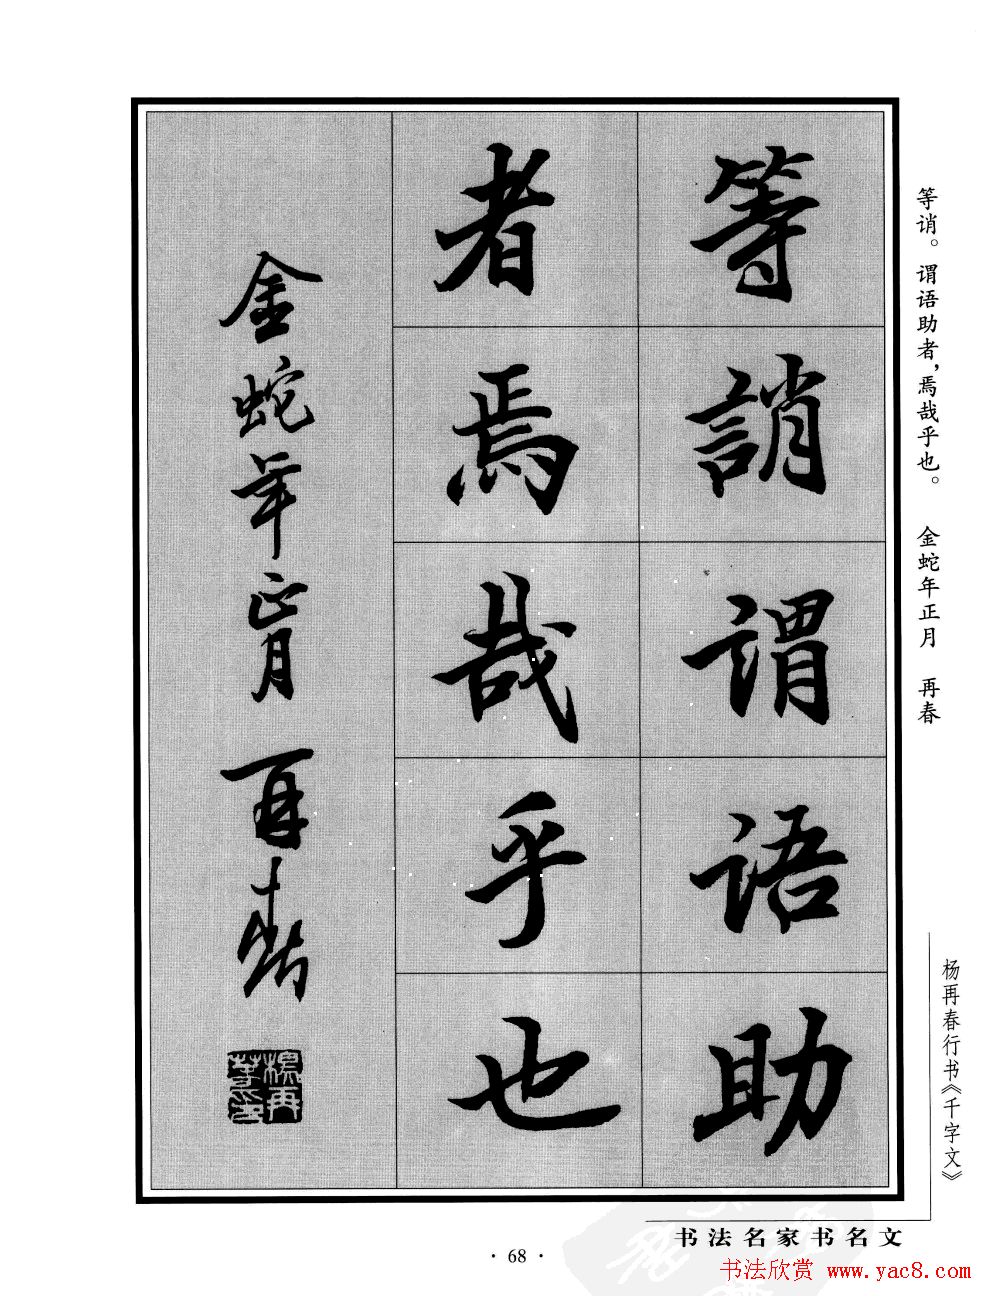 等誚謂语助
者焉哉乎也
金蛇年正月 再春
楊再春印
等诮。谓语助者，焉哉乎也。 金蛇年正月 再春
杨再春行书《千字文》
书法名家书名文
· 68 ·
书法欣赏 www.yac8.com